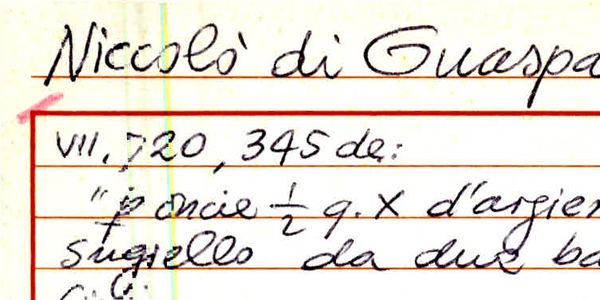 Niccolò di Guaspa
VII, 720, 345 de:
"p oncie 1/2 q. X d'argien
sugiello da due ba